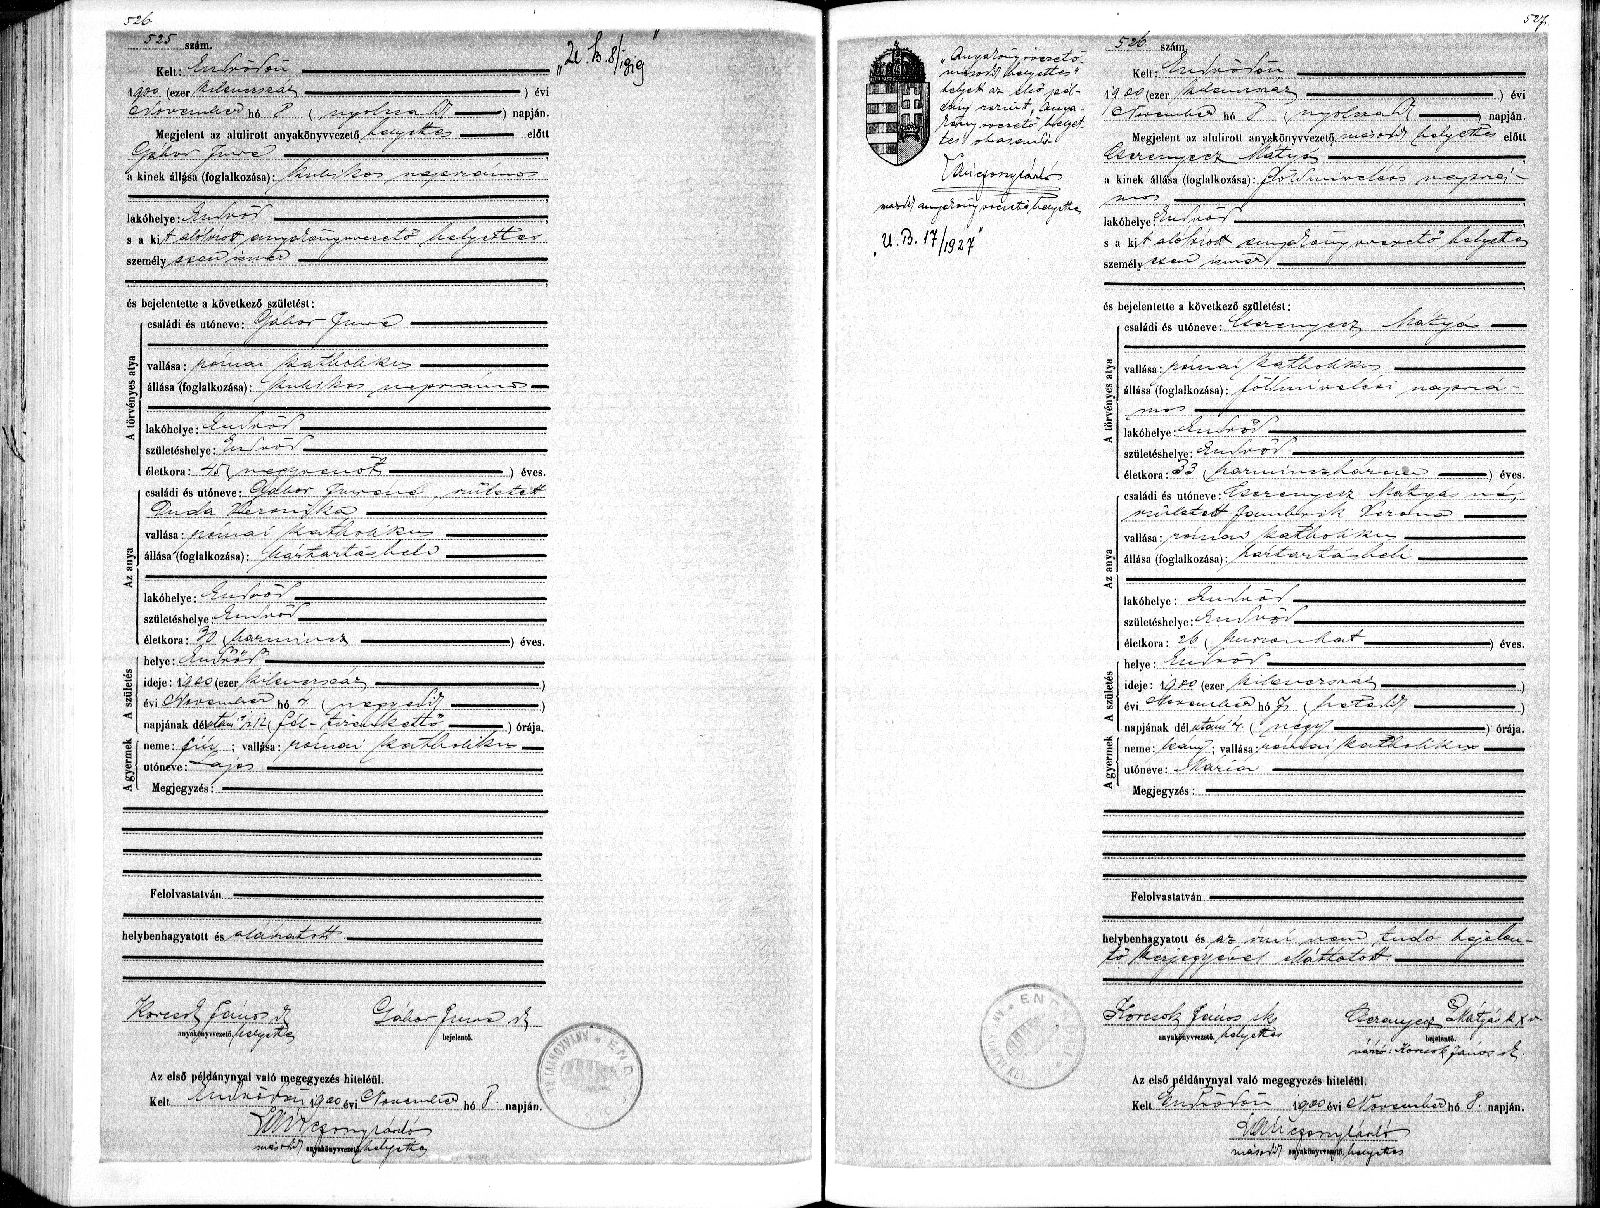 526
525 szám.
Kelt: Endrődön
1900 (ezer kilencszáz ) évi
November hó 8 ( nyolczadik ) napján.
Megjelent az alulirott anyakönyvvezető helyettes előtt
Gábor Imre
a kinek állása (foglalkozása): kubikos napszámos
lakóhelye: Endrőd
s a kit alólirott anyakönyvvezető helyettes
személyesen ismer
és bejelentette a következő születést:
A törvényes atya
családi és utóneve: Gábor Imre
vallása: római katholikus
állása (foglalkozása): kubikos napszámos
lakóhelye: Endrőd
születéshelye: Endrőd
életkora: 45 ( negyvenöt ) éves.
Az anya
családi és utóneve: Gábor Imréné született
Duda Veronika
vallása: római katholikus
állása (foglalkozása): háztartásbeli
lakóhelye: Endrőd
születéshelye: Endrőd
életkora: 30 ( harmincz ) éves.
A születés
helye: Endrőd
ideje: 1900 (ezer kilencszáz )
évi November hó ( )
napjának délutáni ½12 ( fél-tizenkettő ) órája.
A gyermek
neme: fiú ; vallása: római katholikus
utóneve: Lajos
Megjegyzés:
Felolvastatván
helybenhagyatott és aláiratott
Korcsok János sk Gábor Imre sk
anyakönyvvezető helyettes bejelentő.
Az első példánynyal való megegyezés hiteléül.
Kelt Endrődön 1900 évi November hó 8 napján.
másod anyakönyvvezető helyettes
"U. B. 8/1919"
527.
"Anyakönyvvezető
másod helyettes"
helyet az első pél-
dány szerint "anya-
könyvvezető helyet-
tes" olvasandó
másod anyakönyvvezető helyettes
"U. B. 17/1927"
526 szám.
Kelt: Endrődön
1900 (ezer kilencszáz ) évi
November hó 8 ( nyolczadik ) napján.
Megjelent az alulirott anyakönyvvezető másod helyettes előtt
Cserenyecz Mátyás
a kinek állása (foglalkozása): földmívelési napszá-
mos
lakóhelye: Endrőd
s a kit alólirott anyakönyvvezető helyettes
személyesen ismer
és bejelentette a következő születést:
A törvényes atya
családi és utóneve: Cserenyecz Mátyás
vallása: római katholikus
állása (foglalkozása): földmívelési napszá-
mos
lakóhelye: Endrőd
születéshelye: Endrőd
életkora: 33 ( harminczhárom ) éves.
Az anya
családi és utóneve: Cserenyecz Mátyásné,
született
vallása: római katholikus
állása (foglalkozása): háztartásbeli
lakóhelye: Endrőd
születéshelye: Endrőd
életkora: 26 ( huszonhat ) éves.
A születés
helye: Endrőd
ideje: 1900 (ezer kilencszáz )
évi November hó 7 ( hetedik )
napjának délutáni 4 ( négy ) órája.
A gyermek
neme: leány ; vallása: római katholikus
utóneve: Mária
Megjegyzés:
Felolvastatván
helybenhagyatott és az írni nem tudó bejelen-
tő kézjegyével elláttatott
Korcsok János sk Cserenyecz Mátyás k x v
anyakönyvvezető helyettes bejelentő.
névíró: Korcsok János sk
Az első példánynyal való megegyezés hiteléül.
Kelt Endrődön 1900 évi November hó 8. napján.
másod anyakönyvvezető helyettes